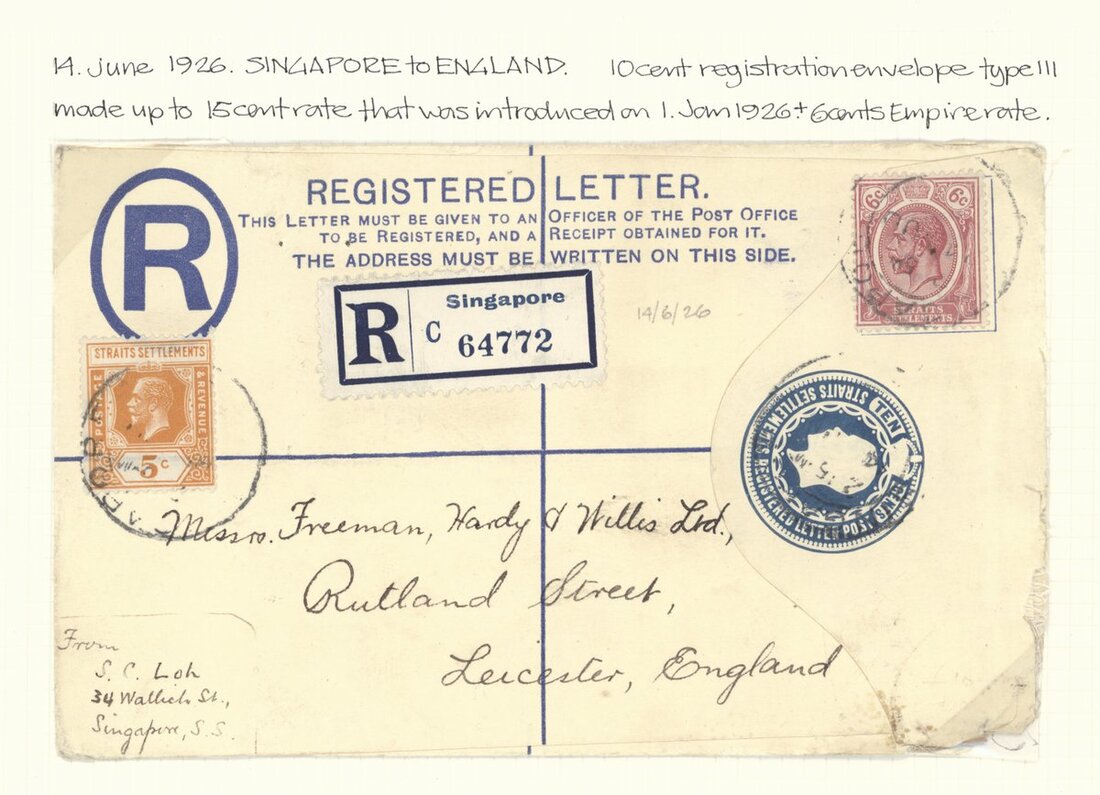 14. June 1926. SINGAPORE to ENGLAND. 10 cent registration envelope type III
made up to 15 cent rate that was introduced on 1. Jan 1926 + 6 cents Empire rate.
R
REGISTERED LETTER.
THIS LETTER MUST BE GIVEN TO AN OFFICER OF THE POST OFFICE
TO BE REGISTERED, AND A RECEIPT OBTAINED FOR IT.
THE ADDRESS MUST BE WRITTEN ON THIS SIDE.
6c 6c
STRAITS
SETTLEMENTS
R
Singapore
C 64772
14/6/26
STRAITS SETTLEMENTS
POSTAGE & REVENUE
5c
TEN CENTS
STRAITS SETTLEMENTS REGISTERED LETTER POST
Messrs. Freeman, Hardy & Willis Ltd.,
Rutland Street,
Leicester, England
From
S. C. Loh
34 Wallich St.,
Singapore, S. S.